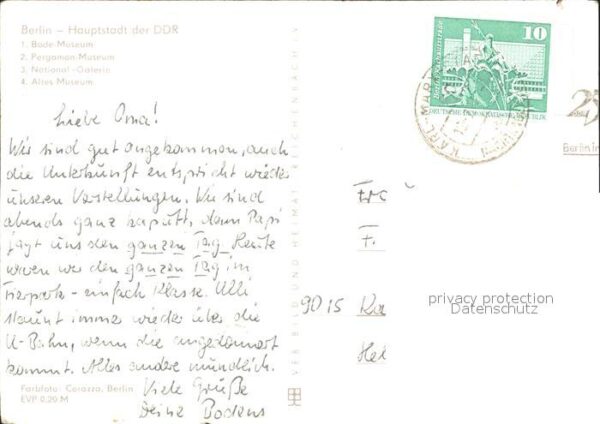 Berlin – Hauptstadt der DDR
1. Bode-Museum
2. Pergamon-Museum
3. National-Galerie
4. Altes Museum
Liebe Oma!
Wir sind gut angekommen, auch
die Unterkunft entspricht wieder
unseren Vorstellungen. Wir sind
abends ganz kaputt, denn Papi
jagt uns den ganzen Tag. Heute
waren wir den ganzen Tag im
Tierpark – einfach Klasse. Ulli
staunt immer wieder über die
U-Bahn, wenn die angedonnert
kommt. Alles andere mündlich.
Viele Grüße
Deine Bodens
Farbfoto: Corazza, Berlin
EVP 0,20 M
VERLAG BILD UND HEIMAT REICHENBACH (V)
10
DEUTSCHE DEMOKRATISCHE REPUBLIK
KARL-MARX-STADT
Berlin in
Frc
F.
9015 Ka
Hei
privacy protection
Datenschutz